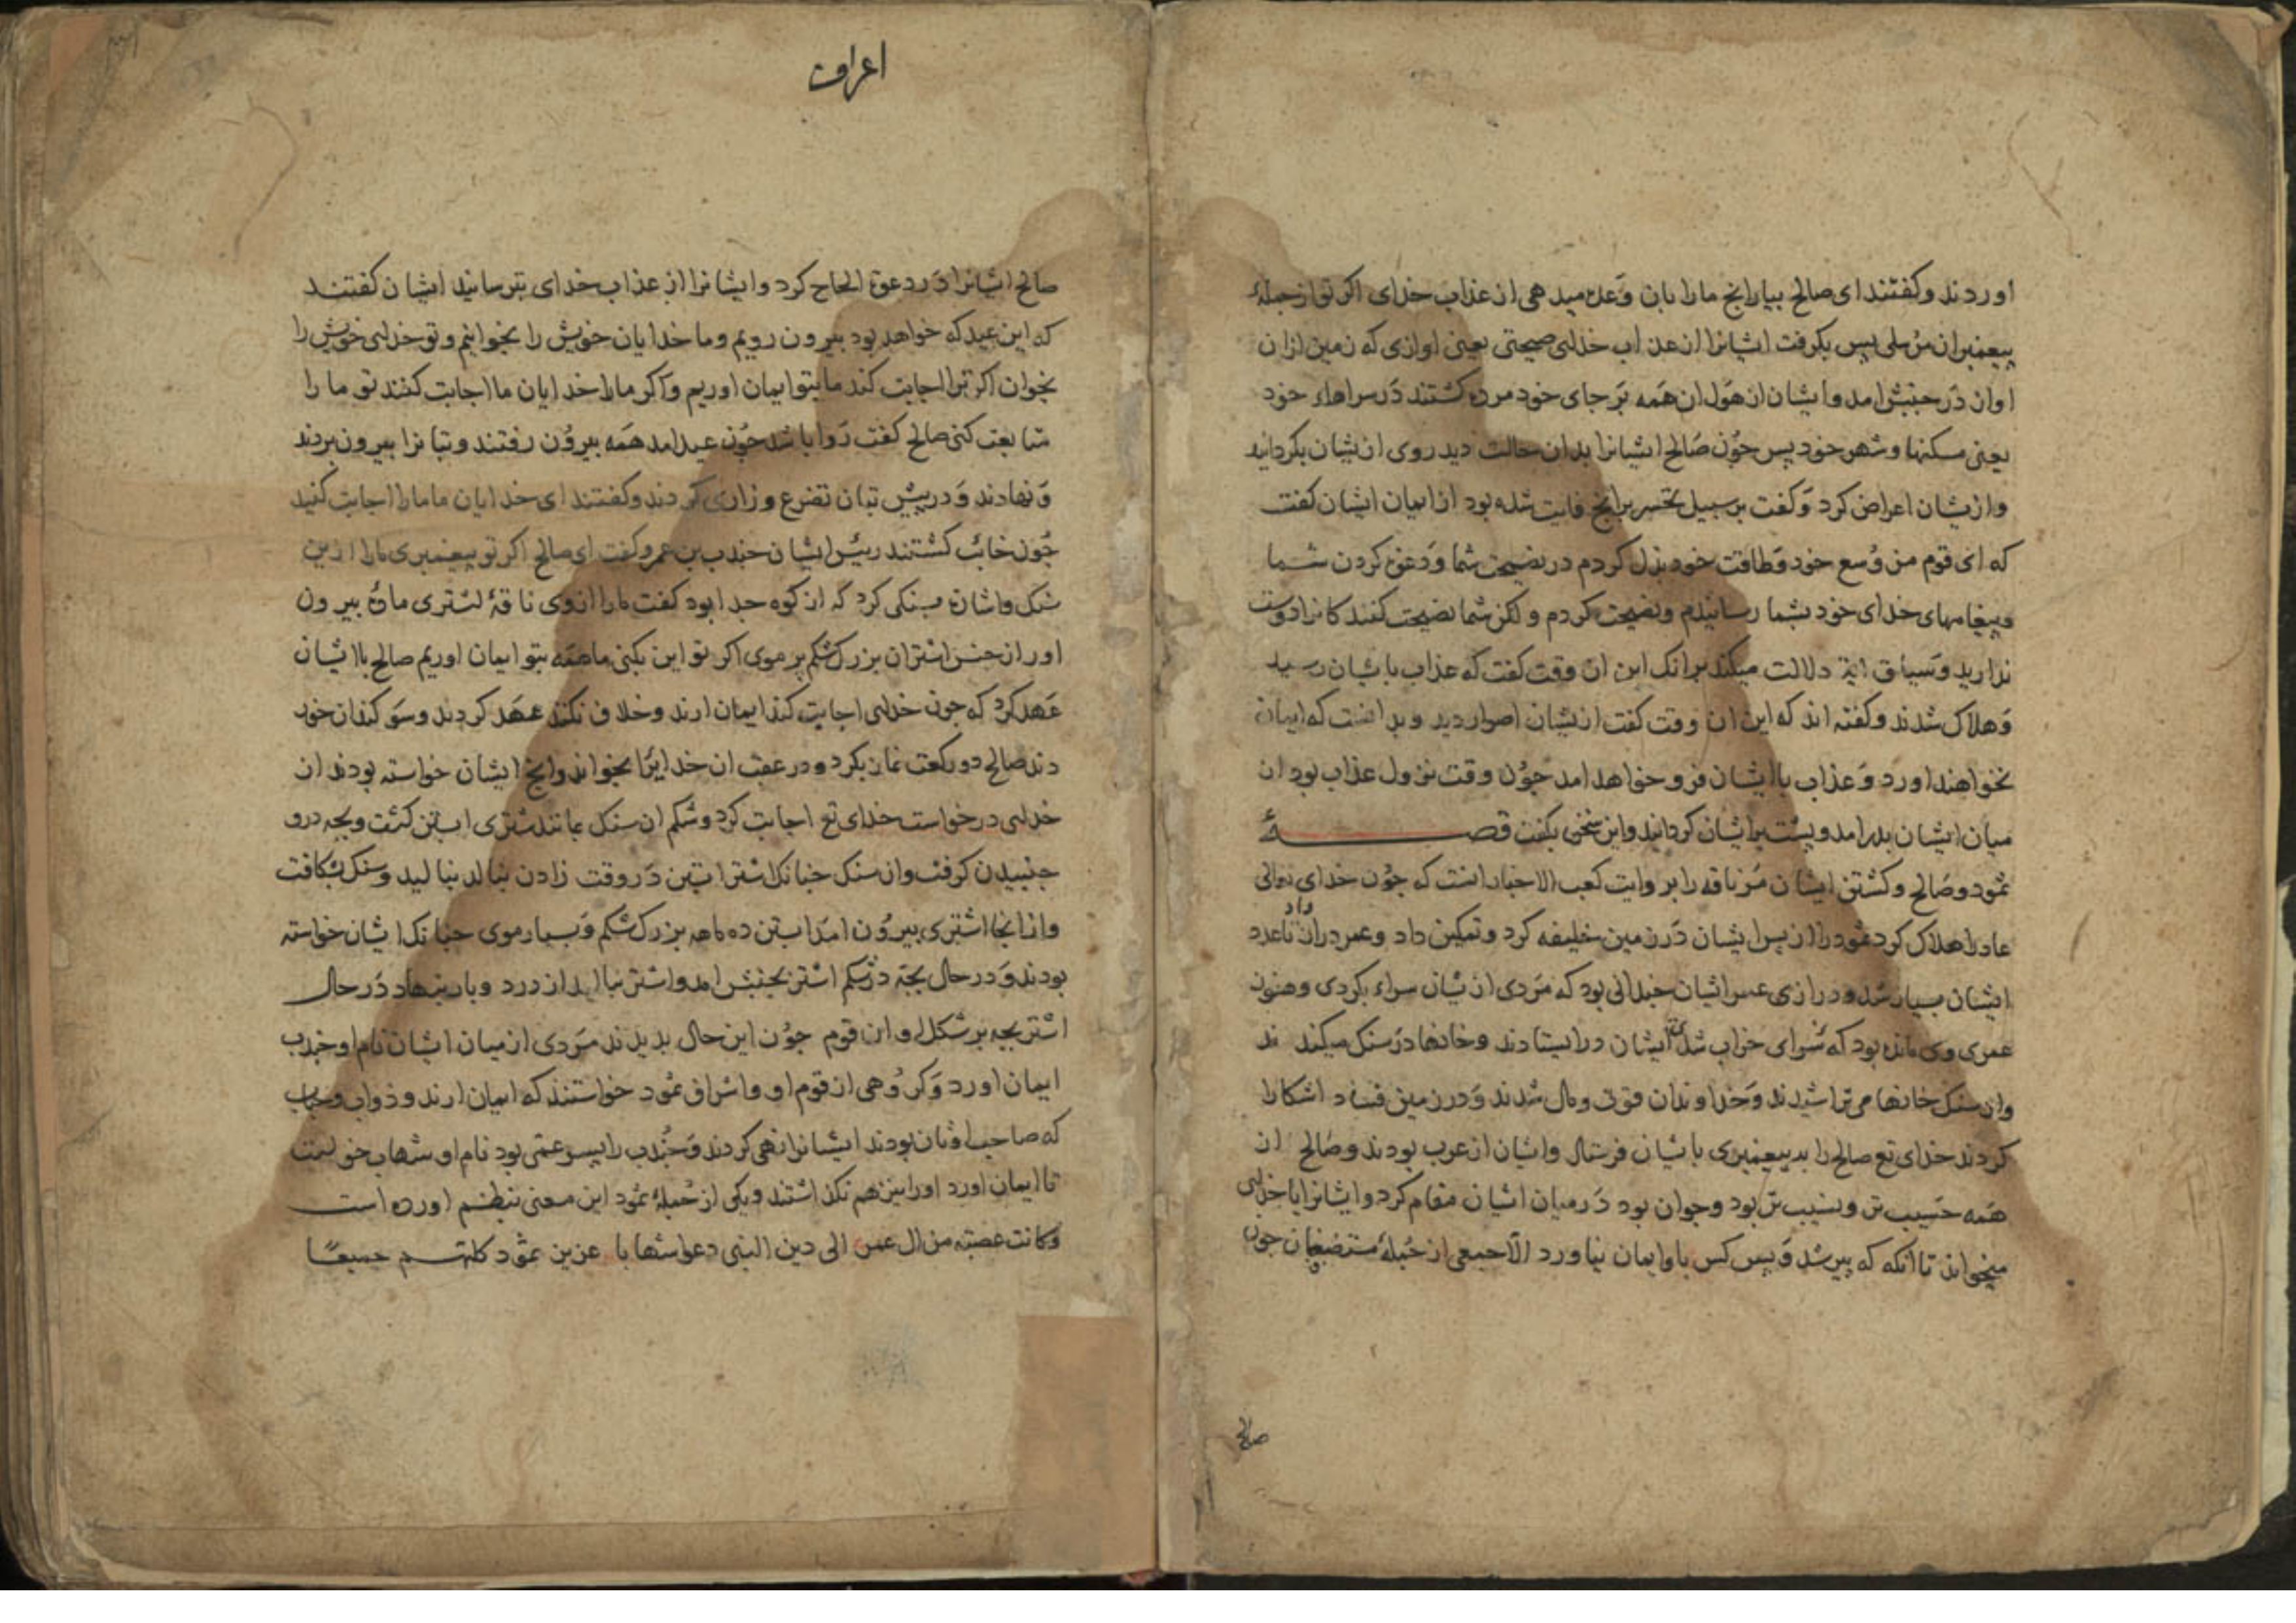 اوردند وكفتند ای صالح بیار انج مارا بان وعده میدهی از عذاب خدای اكر تو از جملهٔ
پیغمبران مرسلی پس بكرفت ایشانرا از عذاب خدای صیحتی یعنی اوازی كه زمین ازان
اواز در جنبش امد وایشان از هول ان همه بر جای خود مرده كشتند در سراهاء خود
یعنی مسكنها وشهر خود پس جون صالح ایشانرا بدان حالت دید روی ازیشان بكردانید
وازیشان اعراض كرد وكفت بر سبیل تحسر برانج فایت شده بود از ایمان ایشان كفت
كه ای قوم من وسع خود وطاقت خود بذل كردم در نصیحت شما ودعوة كردن شما
وپیغامهای خدای خود بشما رسانیدم ونصیحت كردم ولكن شما نصیحت كنندكانرا دوست
ندارید وسیاق ایة دلالت میكند برانك این ان وقت كفت كه عذاب باشان رسید
وهلاك شدند وكفته اند كه این ان وقت كفت ازیشان اصرار دید وبدانست كه ایمان
نخواهند اورد وعذاب باایشان فرو خواهد امد جون وقت نزول عذاب بود از
میان ایشان بدر امد وپشت برایشان كردانید واین سخن بكفت قصهٔ
ثمود وصالح وكشتن ایشان مر ناقه را بروایت كعب الاحبار انست كه جون خدای تعالی
عاد را هلاك كرد ثمود را از پس ایشان در زمین خلیفه كرد وتمكین داد وعمر دراز داد تا عدد
ایشان بسیار شد ودرازی عمر ایشان جندانی بود كه مردی ازیشان سراء بكردی وهنوز
عمری وی مانده بود كه سرای خراب شدی ایشان درایستادند وخانها در سنك میكندند
واز سنك خانها می تراشیدند وخداوندان قوت ومال شدند ودر زمین فساد اشكارا
كردند خدای تع صالح را به پیغمبری باشیان فرستاد وایشان از عرب بودند وصالح از
همه حسیب تر ونسیب تر بود وجوان بود در میان ایشان مقام كرد وایشانرا با خدای
میخواند تا انكه كه پیر شد وپس كس باو ایمان نیاورد الا جمعی از جملهٔ مستضعفان جون
صالح
اعراف
صالح ایشانرا در دعوة الحاح كرد وایشانرا از عذاب خدای بترسانید ایشان كفتند
كه این عید كه خواهد بود بیرون رویم وما خدایان خویش را بخوانیم وتو خدای خویش را
بخوان اكر ترا اجابت كند ما بتو ایمان اوریم واكر مارا خدایان ما اجابت كنند تو ما را
متابعت كنی صالح كفت روا باشد جون عید امد همه بیرون رفتند وبتانرا بیرون بردند
ونهادند ودر پیش بتان تضرع وزاری كردند وكفتند ای خدایان ما مارا اجابت كنید
جون خائب كشتند رئیس ایشان جندب بن عمرو كفت ای صالح اكر تو پیغمبری مارا ازین
سنك واشارة بسنكی كرد كه از كوه جدا بود كفت مارا ازوی ناقهٔ لشتری ماده بیرون
اور از جنس اشتران بزرك شكم پر موی اكر تو این بكنی ما همه بتو ایمان اوریم صالح باایشان
عهد كرد كه جون خدای اجابت كند ایمان ارند وخلاف نكنند عهد كردند وسوكندان خور
دند صالح دو ركعت نماز بكرد ودر عقب ان خدایرا بخواند وانج ایشان خواسته بودند از
خدای درخواست خدای تع اجابت كرد وشكم ان سنك مانند شتری ابستن كشت وبجه درو
جنبیدن كرفت وان سنك جنانك اشتر ابستن در وقت زادن بنالد بنالید وسنك بشكافت
وازانجا اشتری بیرون امد ابستن ده ماهه بزرك شكم وبسیار موی جنانك ایشان خواسته
بودند ودر حال بجه در شكم اشتر بجنبش امد واشتر بنالید از درد وبار بنهاد در حال
اشتر بجه بر شكل او ان قوم جون این حال بدیدند مردی از میان ایشان نام او جندب
ایمان اورد وكروهی از قوم او واشراف ثمود خواستند كه ایمان ارند وذواب وحباب
كه صاحب اوثان بودند ایشانرا نهی كردند وجندب را پسر عمی بود نام او شهاب خواست
تا ایمان اورد اورا نیز هم نكذاشتند ویكی از جملهٔ ثمود این معنی بنظم اورده است
وكانت عصبة من ال عمرو الی دین النبی دعوا شهابا عزیز ثمود كلهم جمیعا